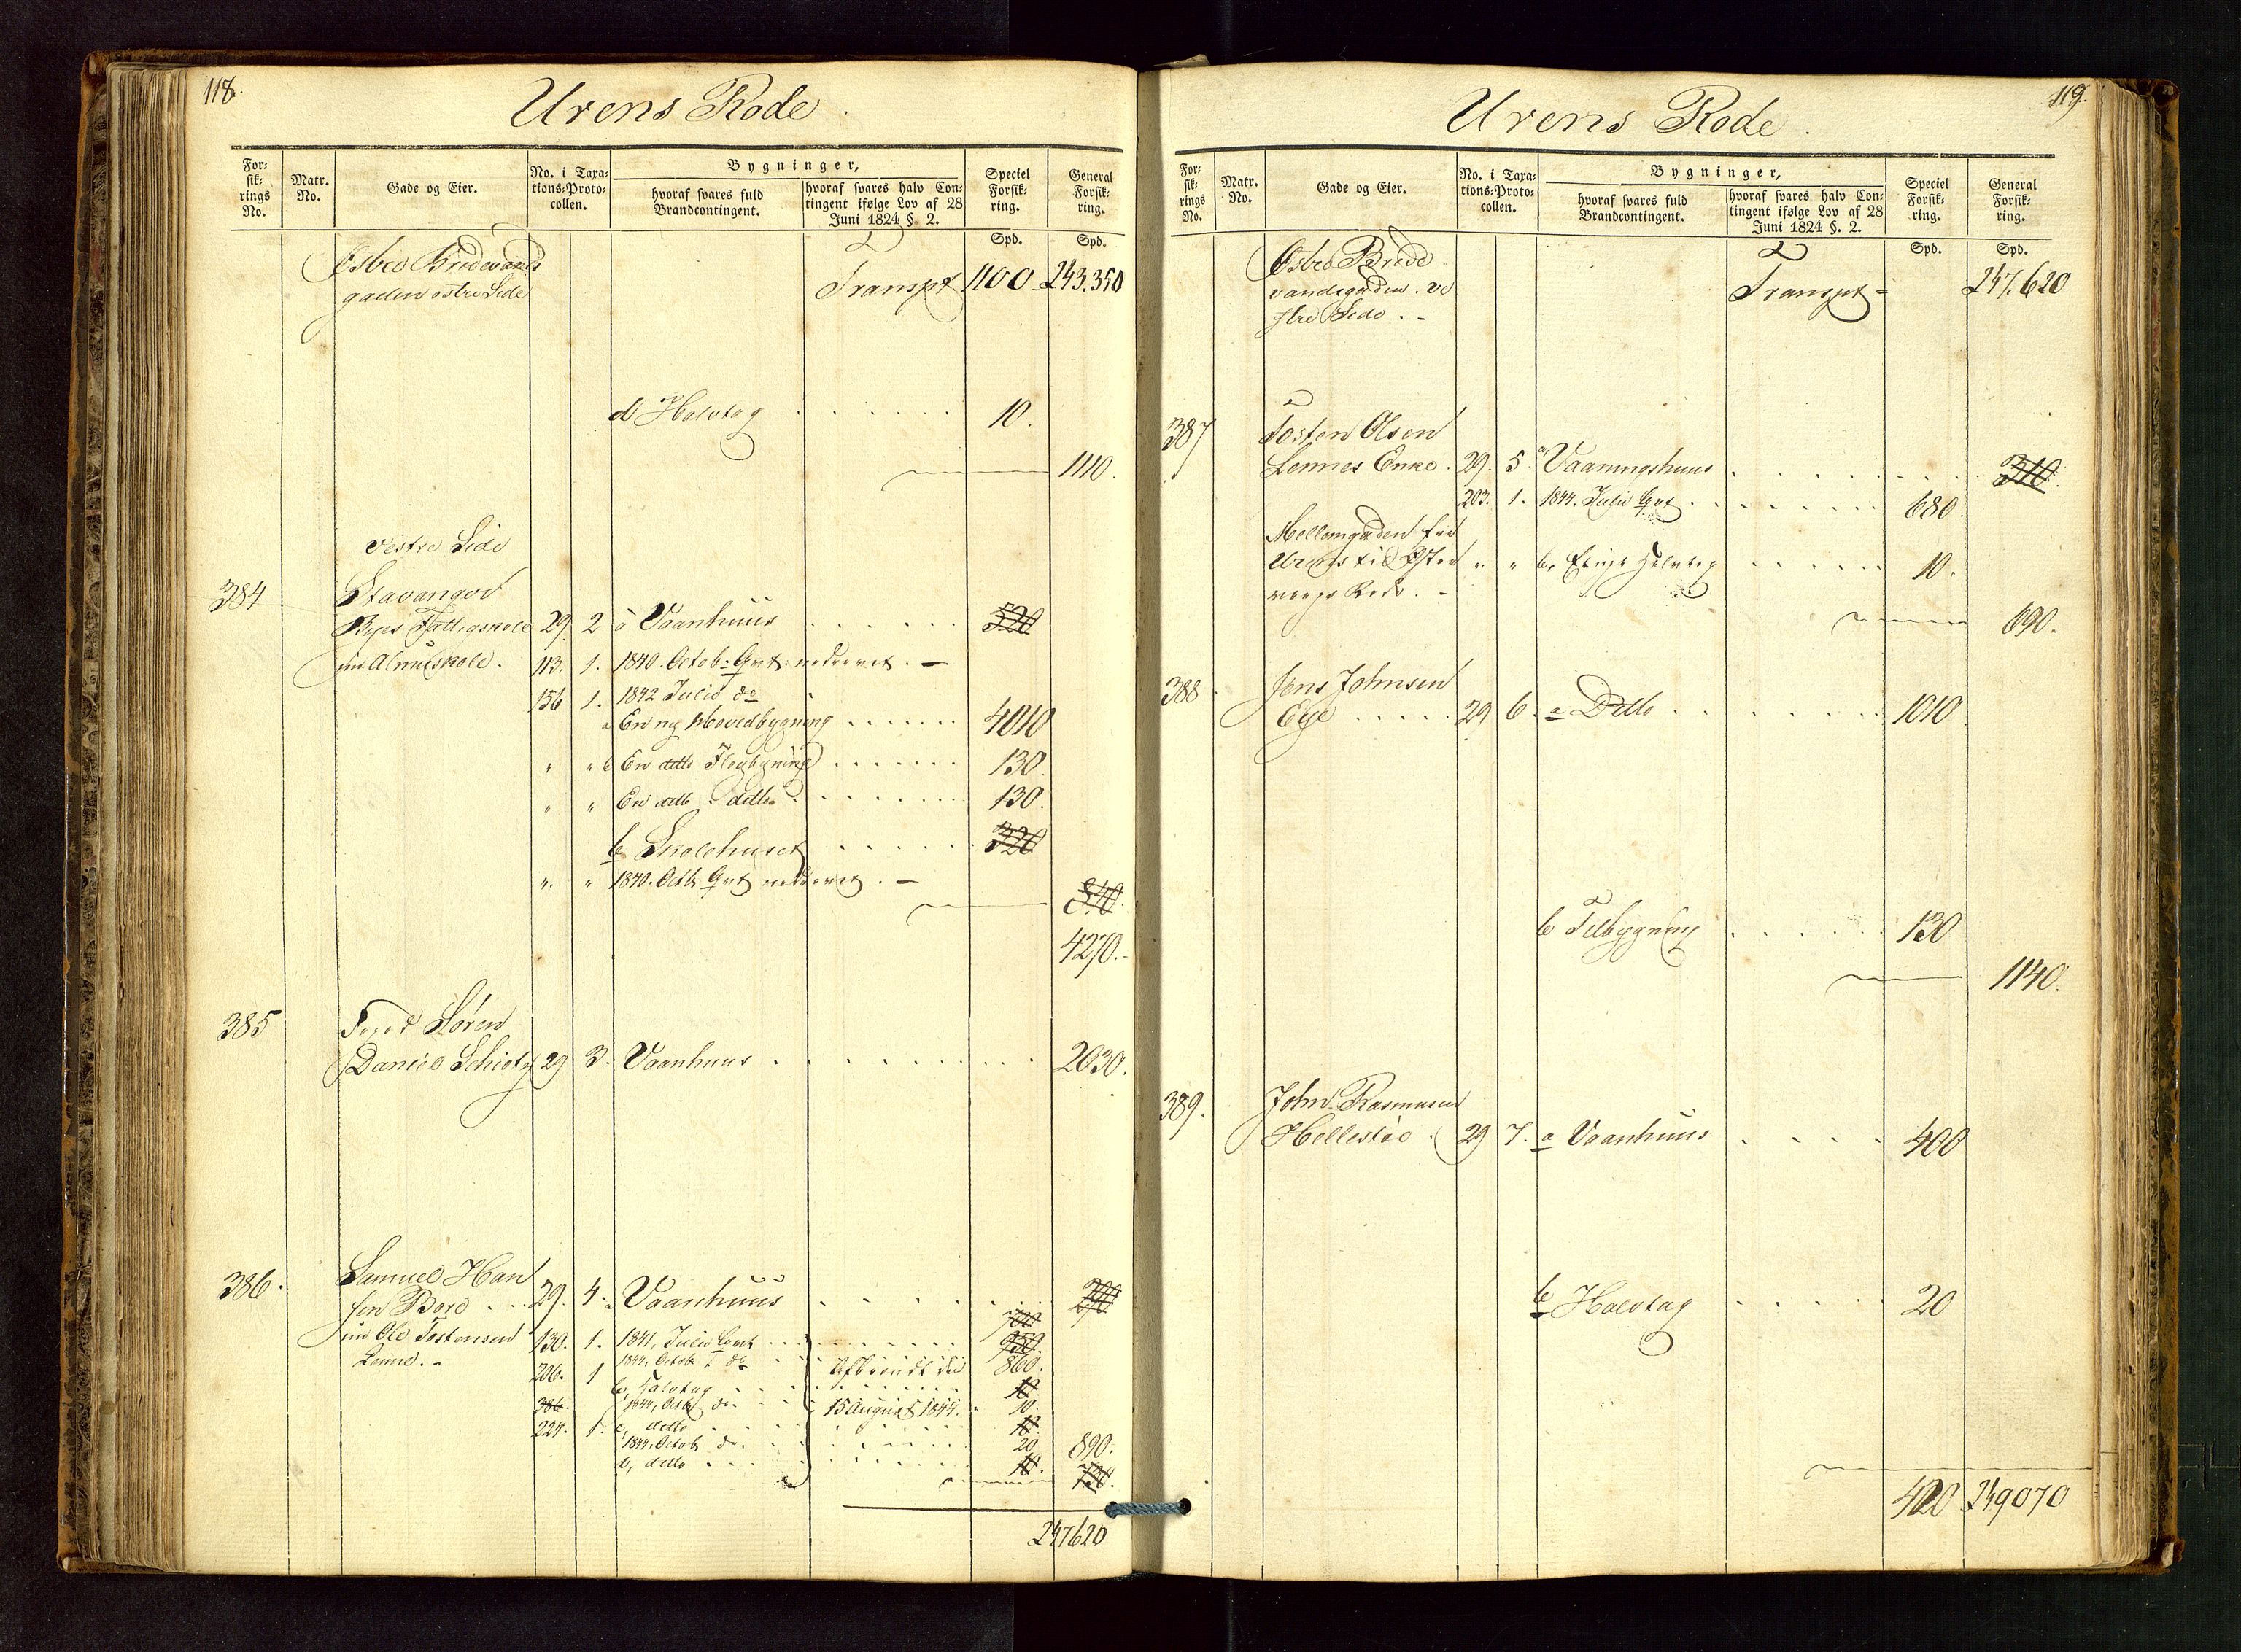 118.
Urens Rode.
For=
sik=
rings
No.
Matr.
No.
Gade og Eier.
No. i Taxa=
tions=Proto=
collen.
Bygninger,
hvoraf svares fuld
Brandcontingent.
hvoraf svares halv Con=
tingent ifølge Lov af 28
Juni 1824 §. 2.
Speciel
Forsik=
ring.
General
Forsik=
ring.
Spd.
Spd.
Østre Bredevands
gaden østre Side
Transpt 1100 243.350
d Halvtag 10.
1110.
Vestre Side
384 Stavanger
Byes Fattigskole 29. 2 a Vaanhuus 520
nu Almuskole. 113. 1. 1840. Octob: Qvt: nedrevet. –
156 1. 1842 Julio do
a En ny Hovedbygning 4010
" " b En ditto Fløybygning 130.
" " En ditto ditto 130.
b Skolehuset 320
" " 1840. Octb Qvt nedrevet. –
840.
4270.-
385 Søren
Daniel Schiøtz 29 3. Vaanhuus 2030.
386. Samuel Han
sen Bore 29. 4. a Vaanhuus
700
nu Ole Tostensen 130. 1. 1841, Julio Qvt 950.
Lenne. - 206. 1 1844, Octob do Afbrændt den 860.
b, Halvtag 10
386. 1844, Octb do 15 August 1844. 10.
224. 1. c, ditto 10.
1844. Octob do. 20 890.
d, ditto 10. 730.
247620
119.
Urens Rode.
For=
sik=
rings
No.
Matr.
No.
Gade og Eier.
No. i Taxa=
tions=Proto=
collen.
Bygninger,
hvoraf svares fuld
Brandcontingent.
hvoraf svares halv Con=
tingent ifølge Lov af 28
Juni 1824 §. 2.
Speciel
Forsik=
ring.
General
Forsik=
ring.
Spd.
Spd.
Østre Brede
vandsgaden. ve
stre Side. -
Transpt 247.620
387 Tosten Olsen
Lennes Enke. 29. 5. a Vaaningshuus 310.
203. 1. 1844. Julio Qvt 680.
Mellemgaden fra
Urens til
Rode. - " " b, Halvtag 10.
690.
388 Jens Johnsen
Eye 29 6. a Ditto 1010
b Tilbygning 130
1140.
389. John Rasmusen
Hellestøe. 29 7. a Vaanhuus 400
b Halvtag 20
420 249070